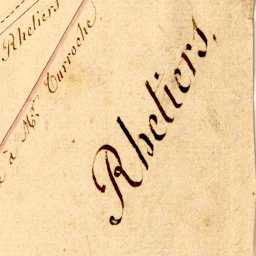 Rhetiers
à Mr. Turroche
Rhetiers.